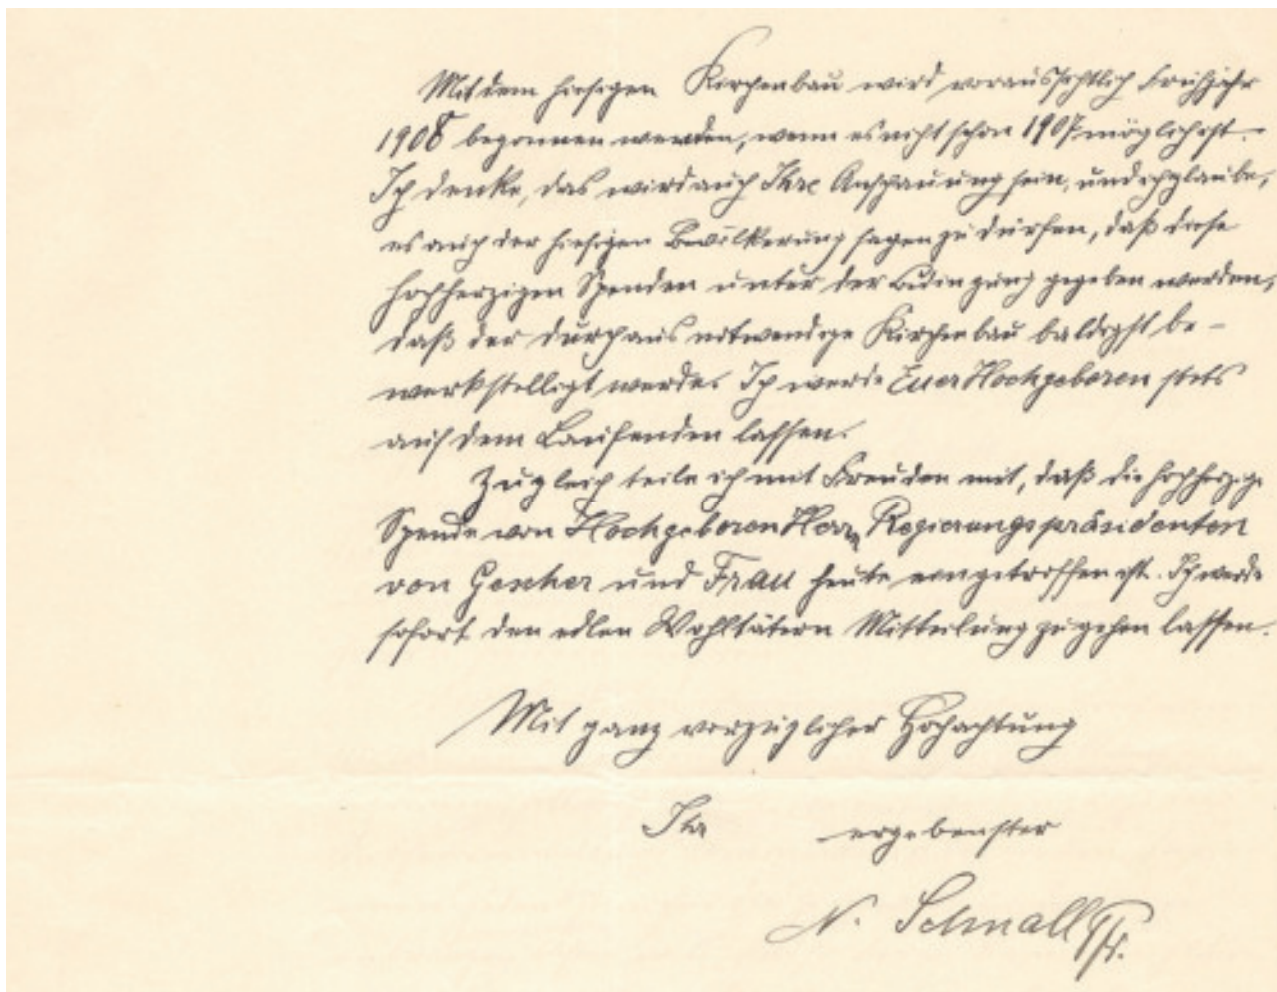 Mit dem hiesigen Kirchenbau wird voraussichtlich Frühjahr
1908 begonnen werden, wenn es nicht schon 1907 möglich ist.
Ich denke, das wird auch Ihre Anschauung sein, und ich glaube,
es auch der hiesigen Bevölkerung sagen zu dürfen, daß diese
hochherzigen Spenden unter der Bedingung gegeben werden,
daß der durchaus notwendige Kirchenbau baldigst be-
werkstelligt werde. Ich werde Euer Hochgeboren stets
auf dem Laufenden lassen.
Zugleich teile ich mit Freuden mit, daß die hochherzige
Spende von Hochgeboren Herrn Regierungspräsidenten
von Gescher und Frau heute eingetroffen ist. Ich werde
sofort den edlen Wohltätern Mitteilung zugehen lassen.
Mit ganz vorzüglicher Hochachtung
Ihr ergebenster
N. Schnall